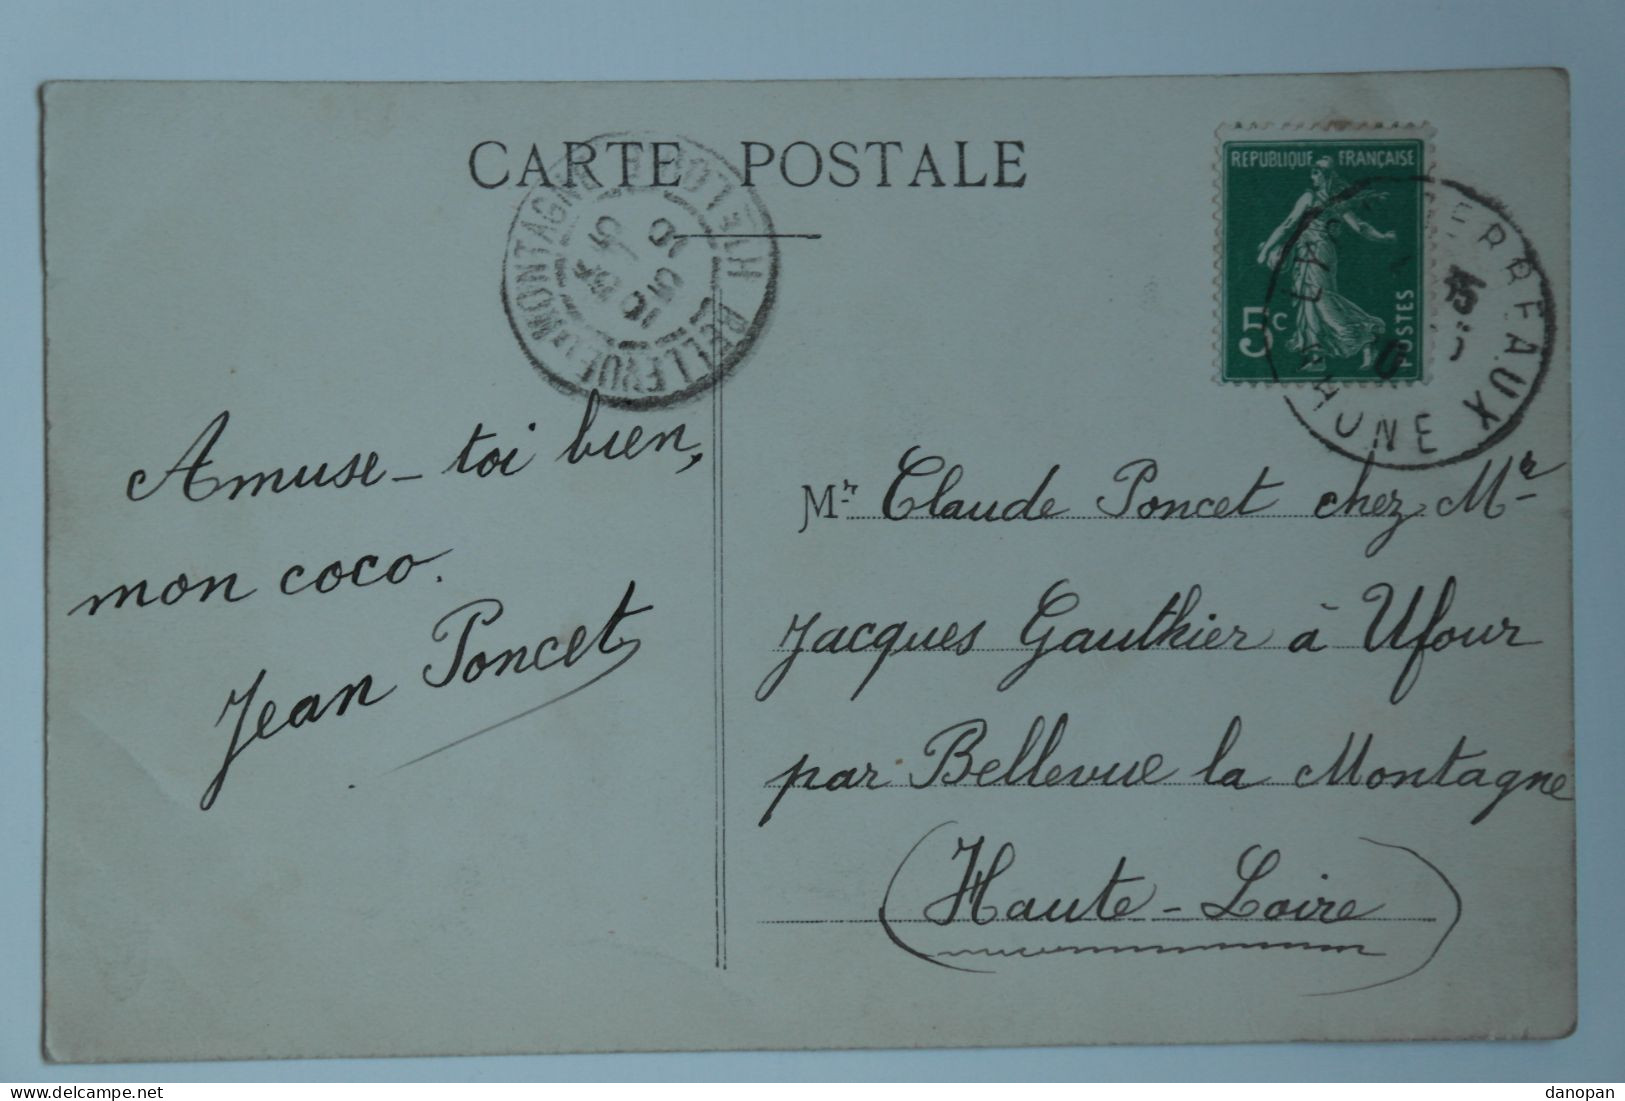 CARTE POSTALE
REPUBLIQUE FRANÇAISE
5c
POSTES
RHONE
BELLEVUE LA MONTAGNE
HTE LOIRE
Amuse-toi bien,
mon coco.
Jean Poncet
Mr Claude Poncet chez Mr
Jacques Gauthier à Ufour
par Bellevue la Montagne
(Haute-Loire)
danopan